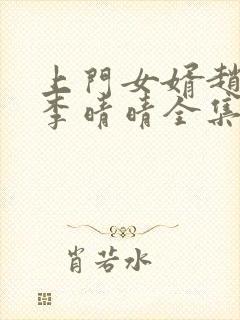 上門女婿趙
李晴晴全集
肖若水